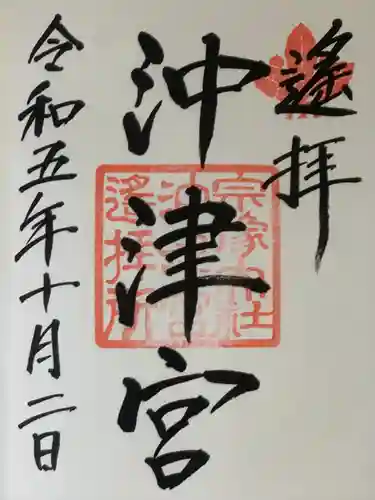 遙拝
沖津宮
令和五年十月二日
宗像神社
沖津宮
遙拝所